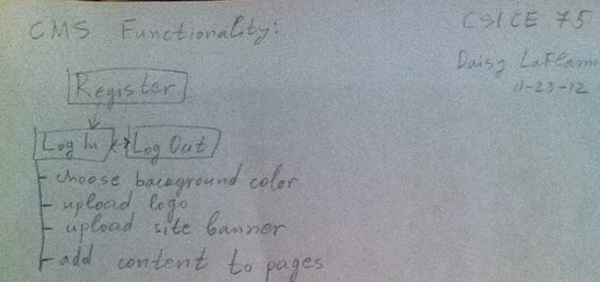 CMS Functionality:
CSICE 75
Daisy
11-23-12
Register
Log In
Log Out
- choose background color
- upload logo
- upload site banner
- add content to pages